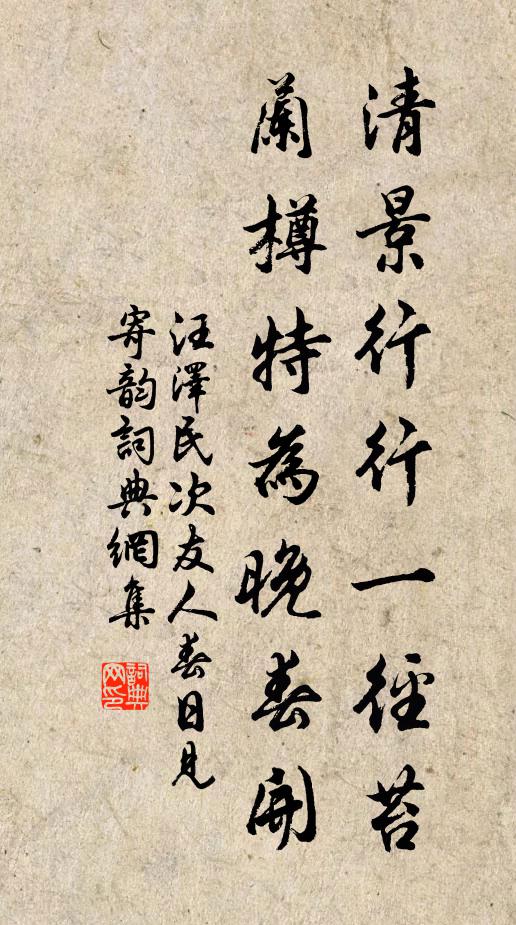 清景行行一徑苔
蘭樽特為晚春開
汪澤民次友人春日見
寄韵詞典網集
詞典網印